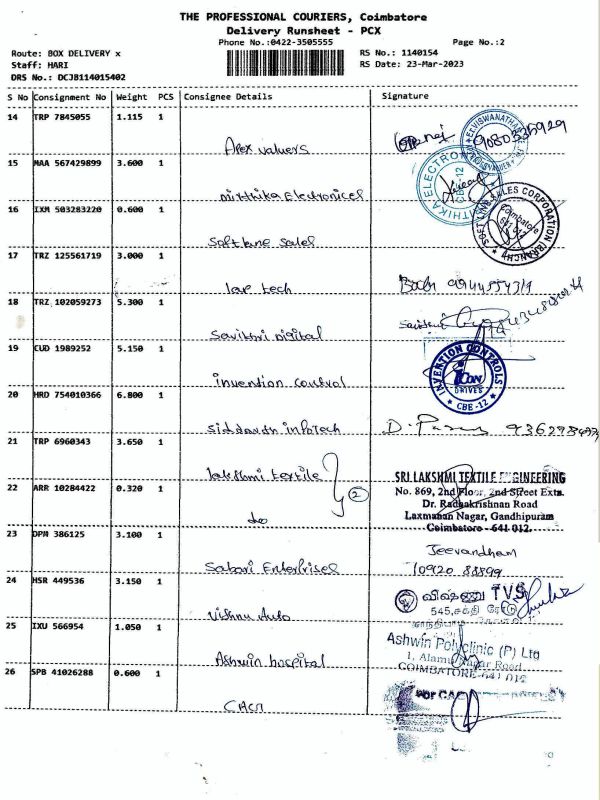 THE PROFESSIONAL COURIERS, Coimbatore
Delivery Runsheet - PCX
Phone No.:0422-3505555 Page No.:2
Route: BOX DELIVERY x RS No.: 1140154
Staff: HARI RS Date: 23-Mar-2023
DRS No.: DCJB114015402
S No Consignment No Weight PCS Consignee Details Signature
14 TRP 7845055 1.115 1
Apex valuers
15 MAA 567429899 3.600 1
Mirthika Electronices
16 IXM 503283220 0.600 1
Softline sales
17 TRZ 125561719 3.000 1
tech
18 TRZ 102059273 5.300 1
Savithri Digital
19 CUD 1989252 5.150 1
invention control
INVENTION CONTROLS
ICON
DRIVES
CBE-12
20 HRD 754010366 6.800 1
Siddharth infotech
21 TRP 6960343 3.650 1
Lakshmi textile
2
SRI LAKSHMI TEXTILE ENGINEERING
22 ARR 10284422 0.320 1
No. 869, 2nd Floor, 2nd Street Extn.
Dr. Radhakrishnan Road
Laxmanan Nagar, Gandhipuram
Coimbatore - 641 012.
do
23 DPM 386125 3.100 1
Jeevandham
Sabari Enterprises
24 HSR 449536 3.150 1
விஷ்ணு TVS
Vishnu Auto
25 IXU 566954 1.050 1
Ashwin Polyclinic (P) Ltd
Ashwin hospital
COIMBATORE-641 012
26 SPB 41026288 0.600 1